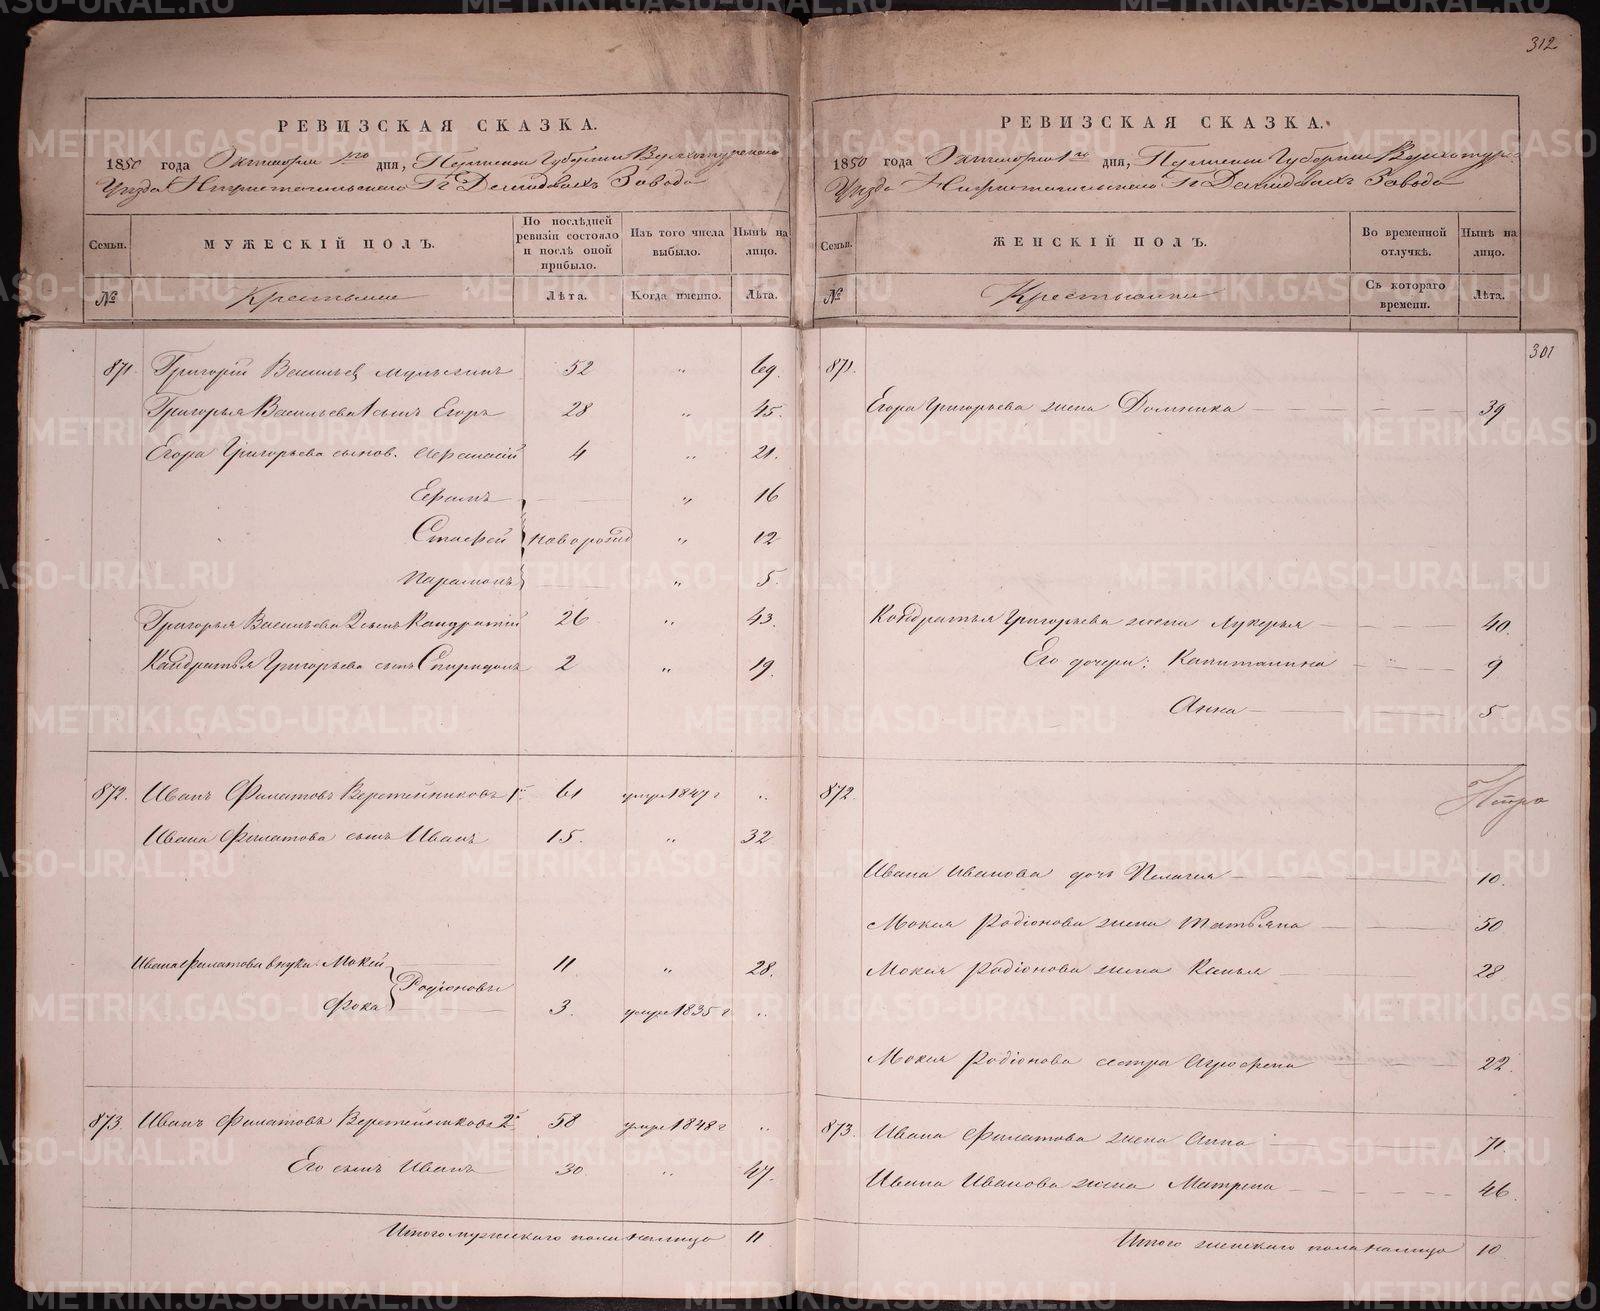 312
РЕВИЗСКАЯ СКАЗКА.
1850 года Октября 1го дня, Пермской Губернии Верхотурскаго
Уезда Нижнетагильскаго Гг Демидовыхъ Завода
Семьи.
МУЖЕСКІЙ ПОЛЪ.
По послѣдней ревизіи состояло и послѣ оной прибыло.
Изъ того числа выбыло.
Нынѣ на лицо.
№
Крестьяне
Лѣта.
Когда именно.
Лѣта.
871. Григорій Васильев 52 " 69.
Григорья Васильева 1 сынъ Егоръ 28 " 45.
Егора Григорьева сынов. Афанасій 4 " 21.
Ефимъ " 16
Стафей новорожд " 12
Парамонъ " 5.
Григорья Васильева 2 сынъ Кандратій 26 " 43.
Кандратья Григорьева сынъ Спиридонъ 2 " 19.
872. Иванъ Филатовъ Веретейниковъ 1й 61 умре 1847 г "
Ивана Филатова сынъ Иванъ 15. " 32
Ивана Филатова внуки: Мокей 11 " 28.
Родіоновы
Фока 3. умре 1835 г "
873. Иванъ Филатовъ Веретейниковъ 2й 58 умре 1848 г "
Его сынъ Иванъ 30. " 47.
Итого мужескаго пола налицо 11
РЕВИЗСКАЯ СКАЗКА.
1850 года Октября 1го дня, Пермской Губернии Верхотурс
Уезда Нижнетагильскаго Гг Демидовыхъ Завода
Семьи.
ЖЕНСКІЙ ПОЛЪ.
Во временной отлучкѣ.
Нынѣ на лицо.
№
Крестьянки
Съ котораго времени.
Лѣта.
301
871.
Егора Григорьева жена Домника 39
Кондратья Григорьева жена Лукерья 40.
Его дочери: Капиталина " 9
Анна 5
872.
Ивана Иванова дочь Пелагия 10.
Мокея Родіонова жена Татьяна 50
Мокея Родіонова жена Ксенья 28
Мокея Родіонова сестра Агрофена 22.
873. Ивана Филатова жена Анна 71.
Ивана Иванова жена Матрена 46.
Итого женскаго пола налицо 10
METRIKI.GASO-URAL.RU